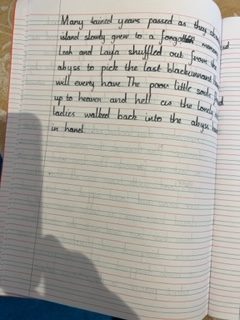 Many tained years passed as they
island slowly grew to a forgotten
Leah and Layla shuffled out from the
abyss to pick the last blackcurrant
will every have. The poor little souls
up to heaven and hell as the lonely
ladies walked back into the abyss
in hand.